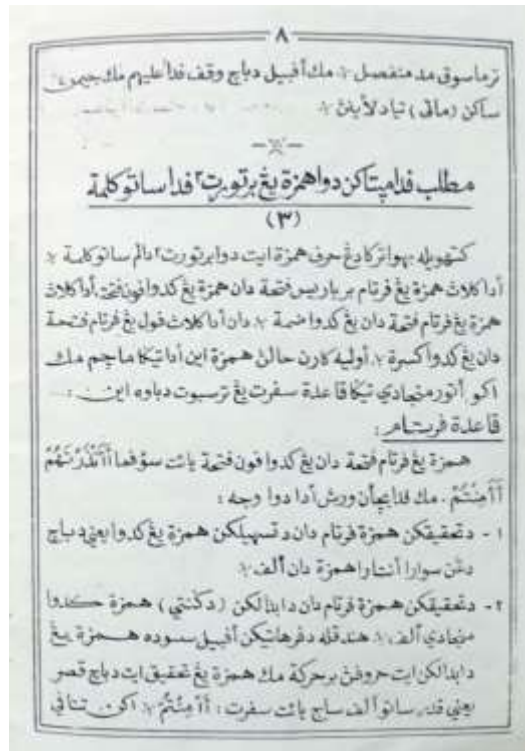 ٨
ترماسوق مد منفصل ⁂ مك أفبيل دباچ وقف فدا عليهم مك جيمن
ساكن (ماتي) تياد لأين ⁂
مطلب فدا مپتاكن دوا همزة يڠ برتورت٢ فدا ساتو كلمة
(٣)
كتهويله بهوا تركادڠ حرف همزة ايت دوا برتورت٢ دالم ساتو كلمة ⁂
أدا كلاڽ همزة يڠ فرتام بر باريس فتحة دان همزة يڠ كدوا فون فتحة، أدا كلاڽ
همزة يڠ فرتام فتحة دان يڠ كدوا ضمة ⁂ دان أدا كلاڽ فول يڠ فرتام فتحة
دان يڠ كدوا كسرة ⁂ أوليه كارن حالڽ همزة اين أدا تيݢا ماچم مك
اكو أتور منجادي تيݢا قاعدة سفرت يڠ ترسبوت دباوه اين :
قاعدة فرتام :
همزة يڠ فرتام فتحة دان يڠ كدوا فون فتحة يائت سؤفما أَأَنْذَرْتَهُمْ
أَأَمِنْتُمْ . مك فدا بچأن ورش أدا دوا وجه :
١ - دتحقيقكن همزة فرتام دان دتسهيلكن همزة يڠ كدوا يعني دباچ
دڠن سوارا أنتارا همزة دان ألف ⁂
٢ - دتحقيقكن همزة فرتام دان دابدالكن (دݢنتي) همزة كدوا
منجادي ألف ⁂ هندقله دفرهاتيكن أفبيل سسوده همزة يڠ
دابدالكن ايت حروفڽ برحركة مك همزة يڠ تحقيق ايت دباچ قصر
يعني قدر ساتو ألف ساج يائت سفرت : أَأَمِنْتُمْ ⁂ اكن تتافي